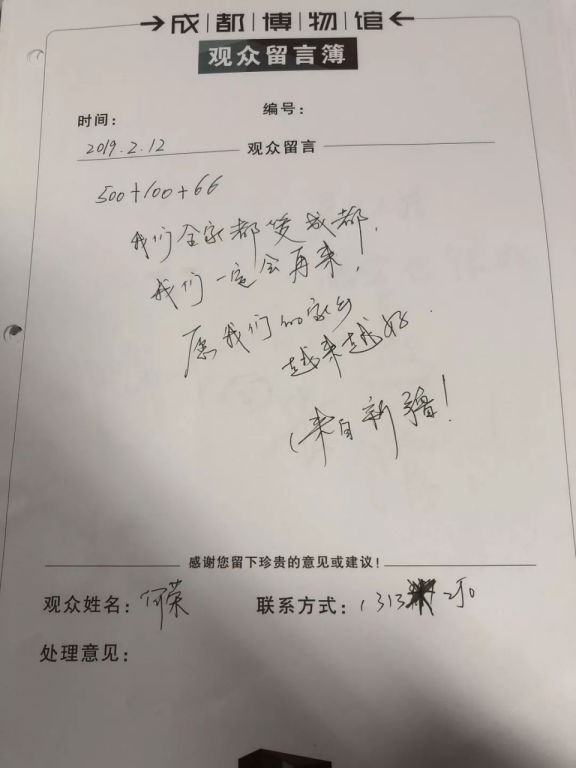 成都博物馆
观众留言簿
时间： 编号：
2019.2.12 观众留言
500+100+66
我们全家都爱成都，
我们一定会再来，
愿我们的家乡
越来越好.
（来自新疆！
感谢您留下珍贵的意见或建议！
观众姓名：何荣 联系方式：1313
处理意见：